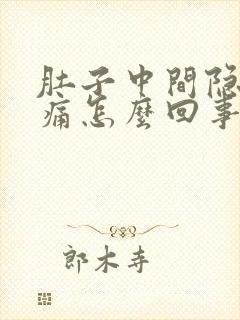 肚子中間隐
痛怎麼回事
郎木寺